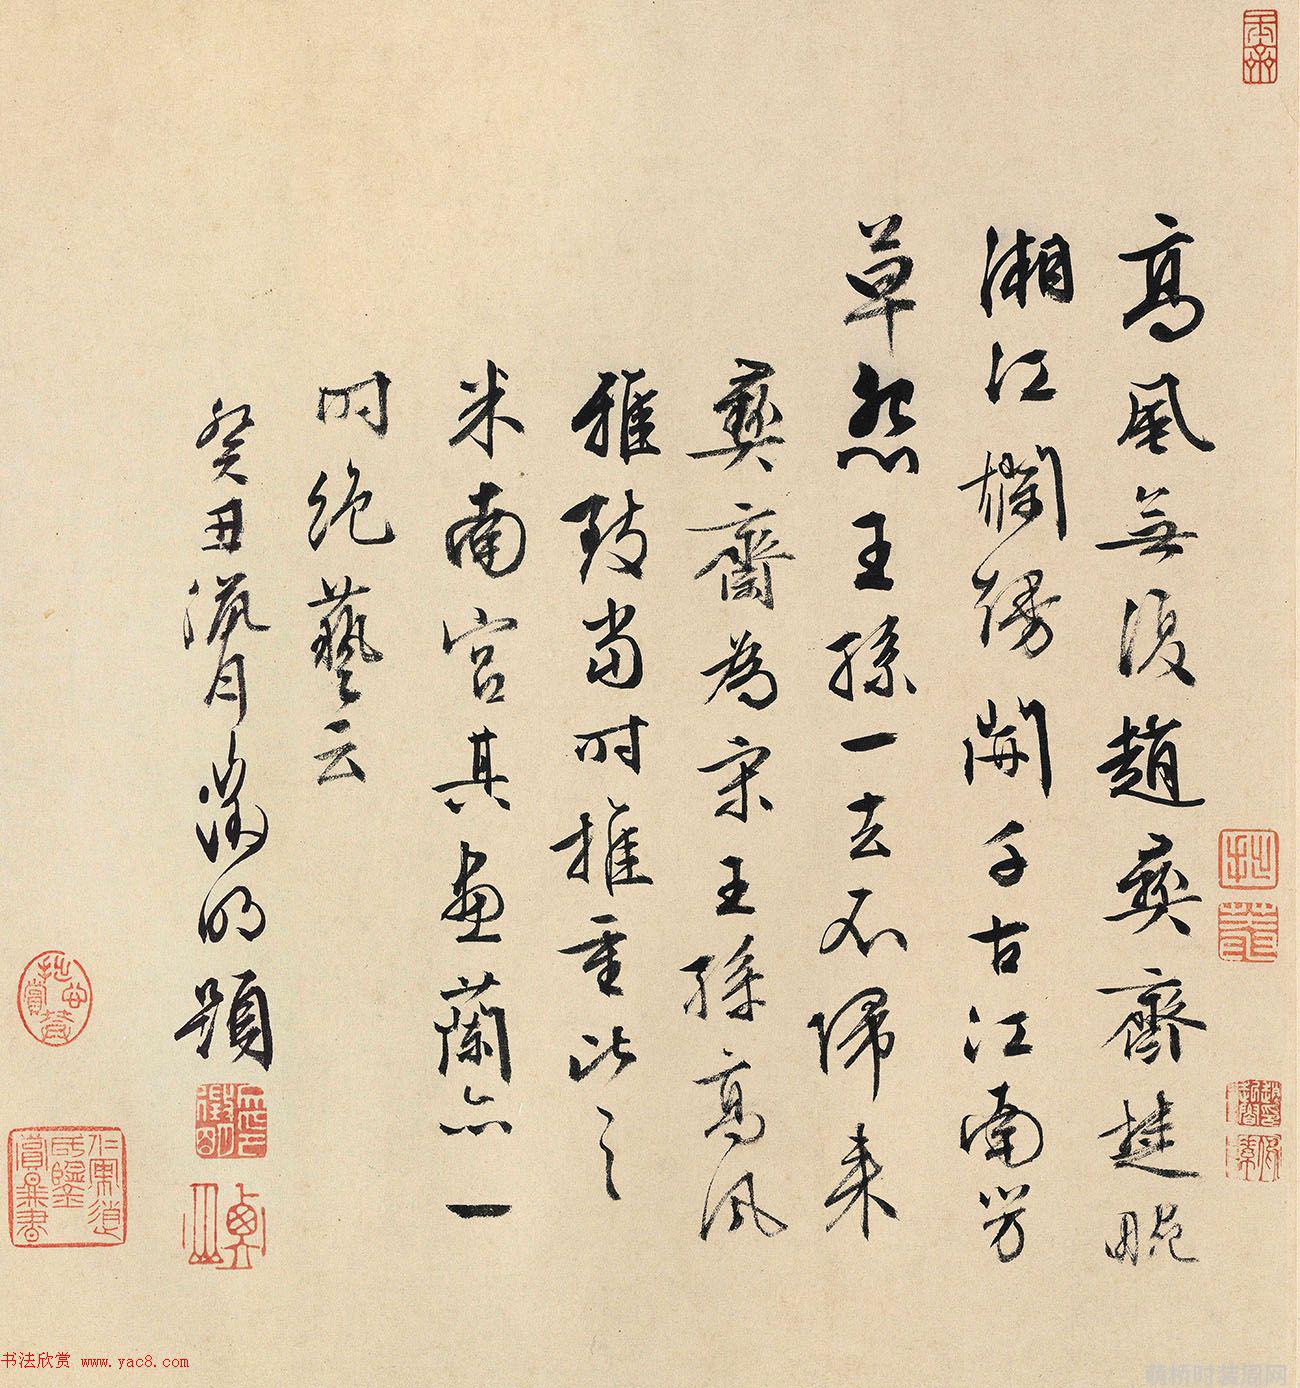 高風無復趙彝齋楚畹
湘江爛熳開千古江南芳
草怨王孫一去不歸來
彝齋為宋王孫高風
雅致當时推重比之
米南宮其畫蘭亦一
时绝藝云
癸丑臘月徵明題
衡山
书法欣赏 www.yac8.com